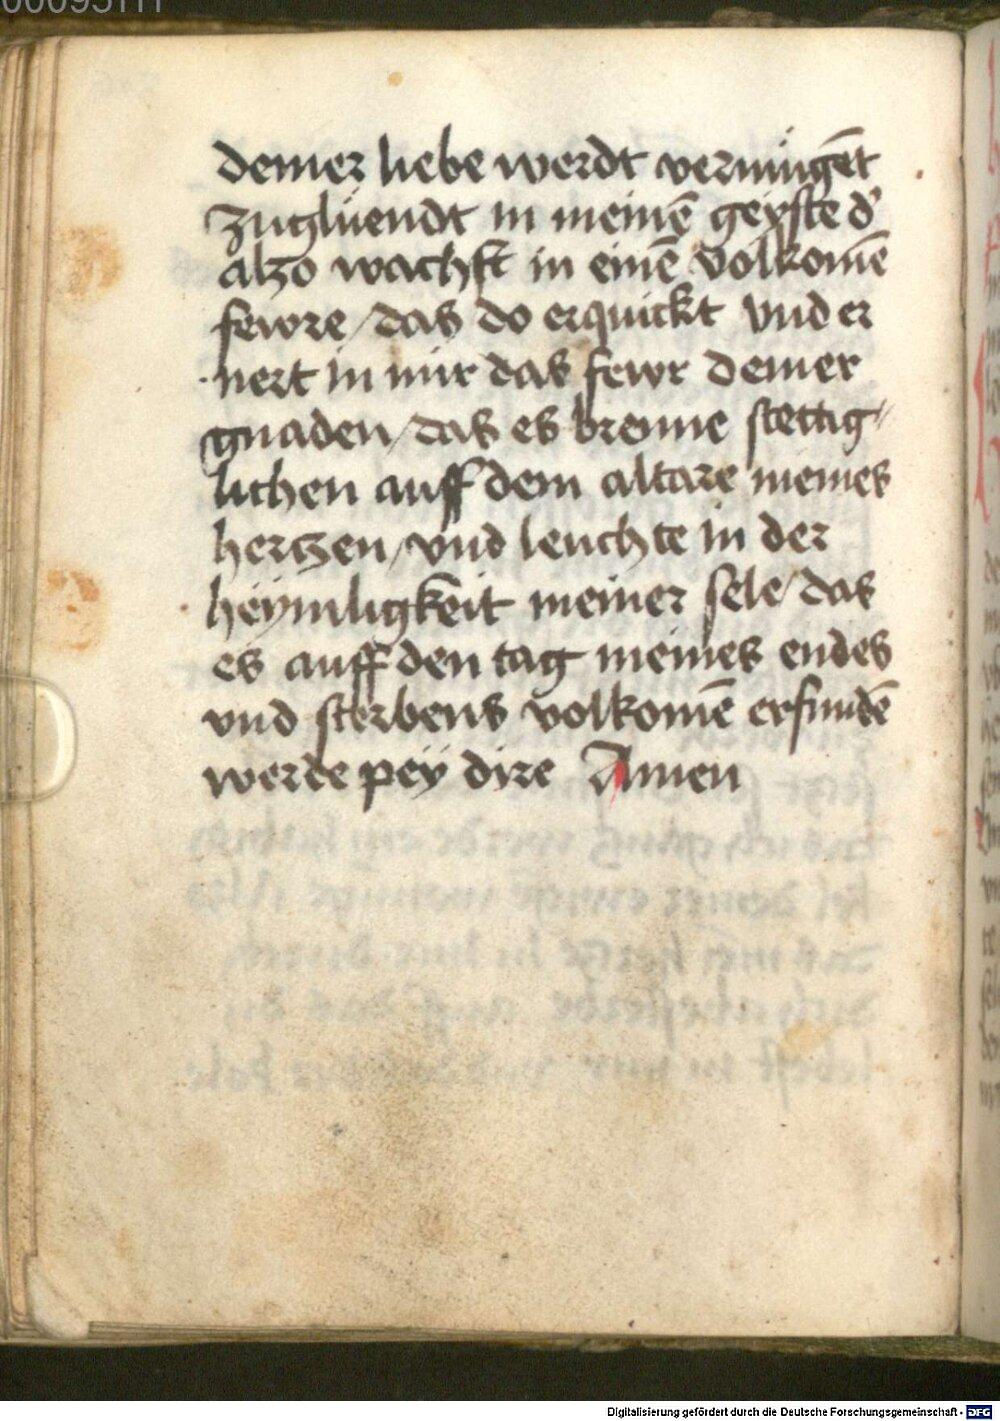 deiner liebe werdt vermügēt
zuglüendt in meinē geyste d'
alzo wachst in einē volkomē
fewre / das do erquickt vnd er
nert in mir das fewr deiner
gnaden / das es brenne stettig"
lichen auff dem altare meines
hertzen / vnd leuchte in der
heÿmligkeit meiner sele / das
es auff den tag meines endes
vnd sterbens volkomē erfundē
werde peÿ dire Amen
Digitalisierung gefördert durch die Deutsche Forschungsgemeinschaft - DFG